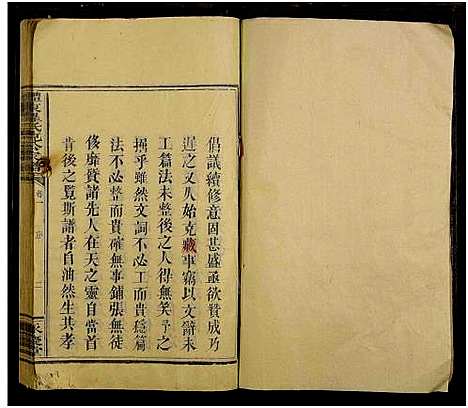 倡議續修意固甚盛亟欲贊成乃
遲之又久始克蕆事竊以文辭未
工篇法未整後之人得無笑予之
搆乎雖然文詞不必工而貴穩篇
法不必整而貴確無事鋪張無徒
修靡質諸先人在天之靈自當首
肯後之覽斯譜者自油然生其孝
卷一 序 二